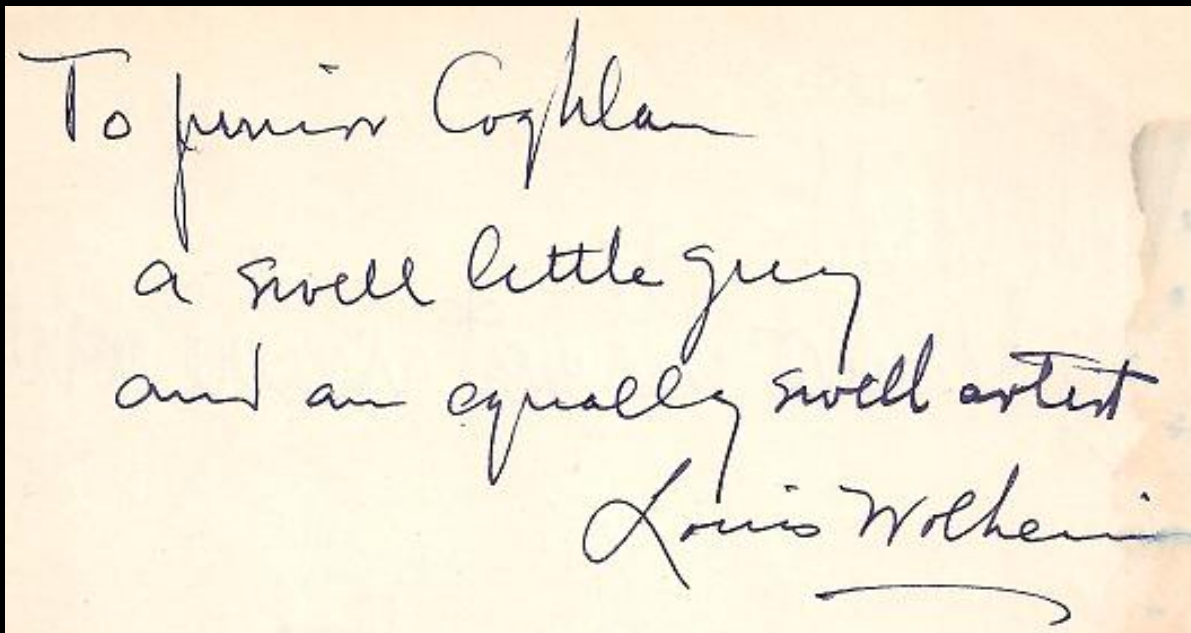 To Junior Coghlan
a swell little guy
and an equally swell artist
Louis Wolheim